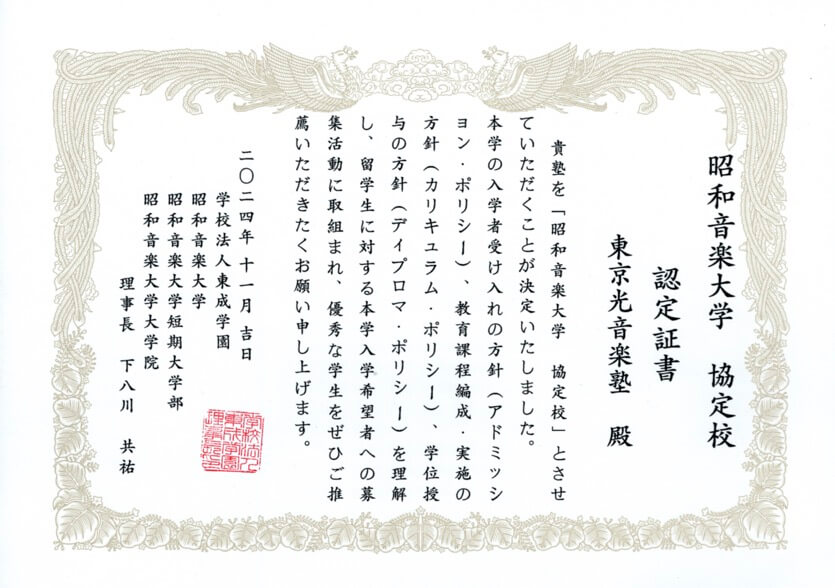 昭和音楽大学 協定校
認定証書
東京光音楽塾 殿
貴塾を「昭和音楽大学 協定校」とさせ
ていただくことが決定いたしました。
本学の入学者受け入れの方針(アドミッシ
ョン・ポリシー)、教育課程編成・実施の
方針(カリキュラム・ポリシー)、学位授
与の方針(ディプロマ・ポリシー)を理解
し、留学生に対する本学入学希望者への募
集活動に取組まれ、優秀な学生をぜひご推
薦いただきたくお願い申し上げます。
二〇二四年 十一月 吉日
学校法人東成学園
昭和音楽大学
昭和音楽大学短期大学部
昭和音楽大学大学院
理事長 下八川 共祐